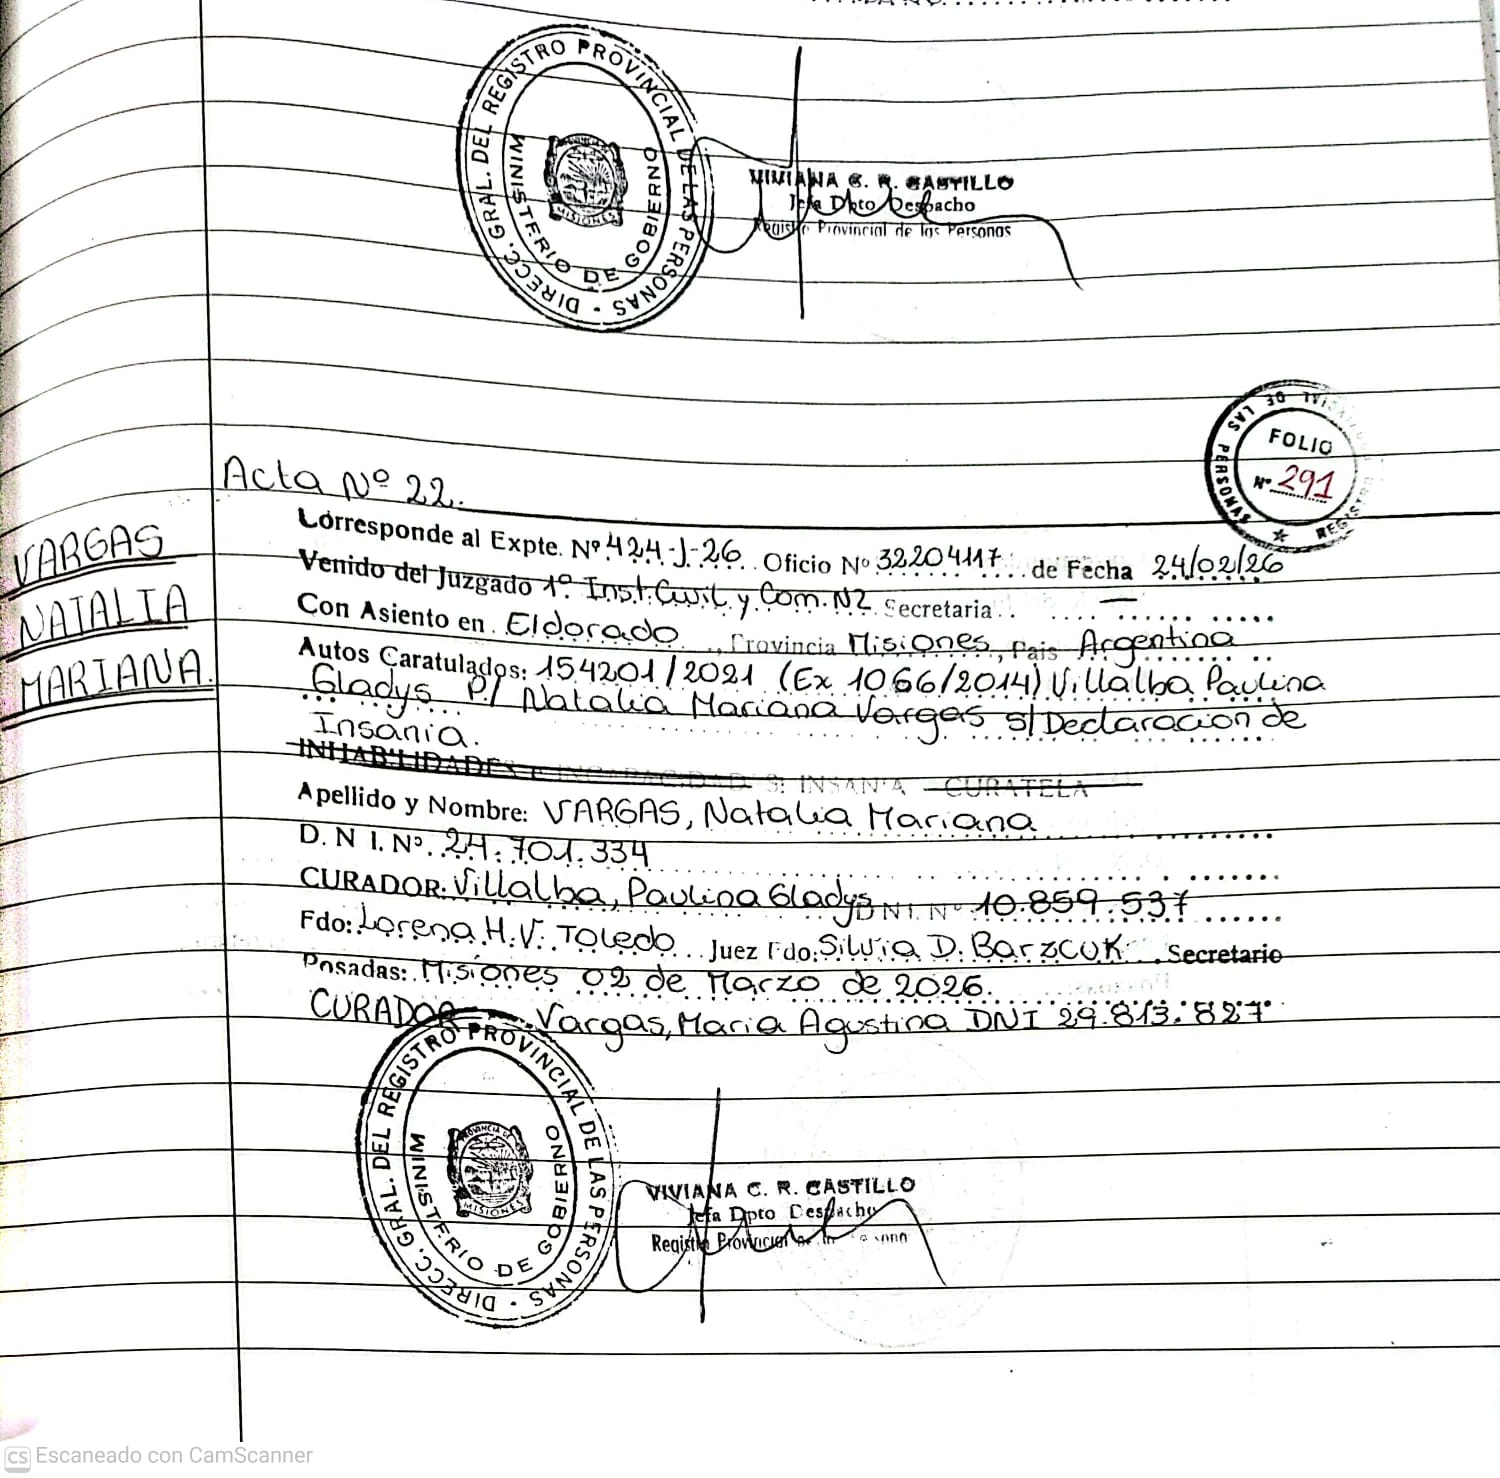 DIRECC. GRAL. DEL REGISTRO PROVINCIAL DE LAS PERSONAS
MINISTERIO DE GOBIERNO
MISIONES
VIVIANA C. R. CASTILLO
Jefa Dpto Despacho
Registro Provincial de las Personas
REGISTRO PROVINCIAL DE LAS PERSONAS
FOLIO
Nº 291
Acta Nº 22.
VARGAS
NATALIA
MARIANA.
Corresponde al Expte. Nº 424-J-26 Oficio Nº 32204117 de Fecha 24/02/26
Venido del Juzgado 1º Inst. Civil y Com. N2 Secretaria —
Con Asiento en Eldorado, Provincia Misiones, Pais Argentina
Autos Caratulados: 154201/2021 (Ex 1066/2014) Villalba Paulina
Gladys P/ Natalia Mariana Vargas s/ Declaracion de
Insania.
INHABILIDADES INCAPACIDAD S: INSANIA CURATELA
Apellido y Nombre: VARGAS, Natalia Mariana
D. N I. Nº 24.701.334
CURADOR: Villalba, Paulina Gladys D N I. Nº 10.859.537
Fdo: Lorena H. V. TOLEDO Juez Fdo: Silvia D. Barzcuk Secretario
Posadas: Misiones 02 de Marzo de 2026.
CURADOR Vargas, Maria Agustina DNI 29.813.827
DIRECC. GRAL. DEL REGISTRO PROVINCIAL DE LAS PERSONAS
MINISTERIO DE GOBIERNO
PROVINCIA DE
MISIONES
VIVIANA C. R. CASTILLO
Jefa Dpto Despacho
Registro Provincial
CS Escaneado con CamScanner